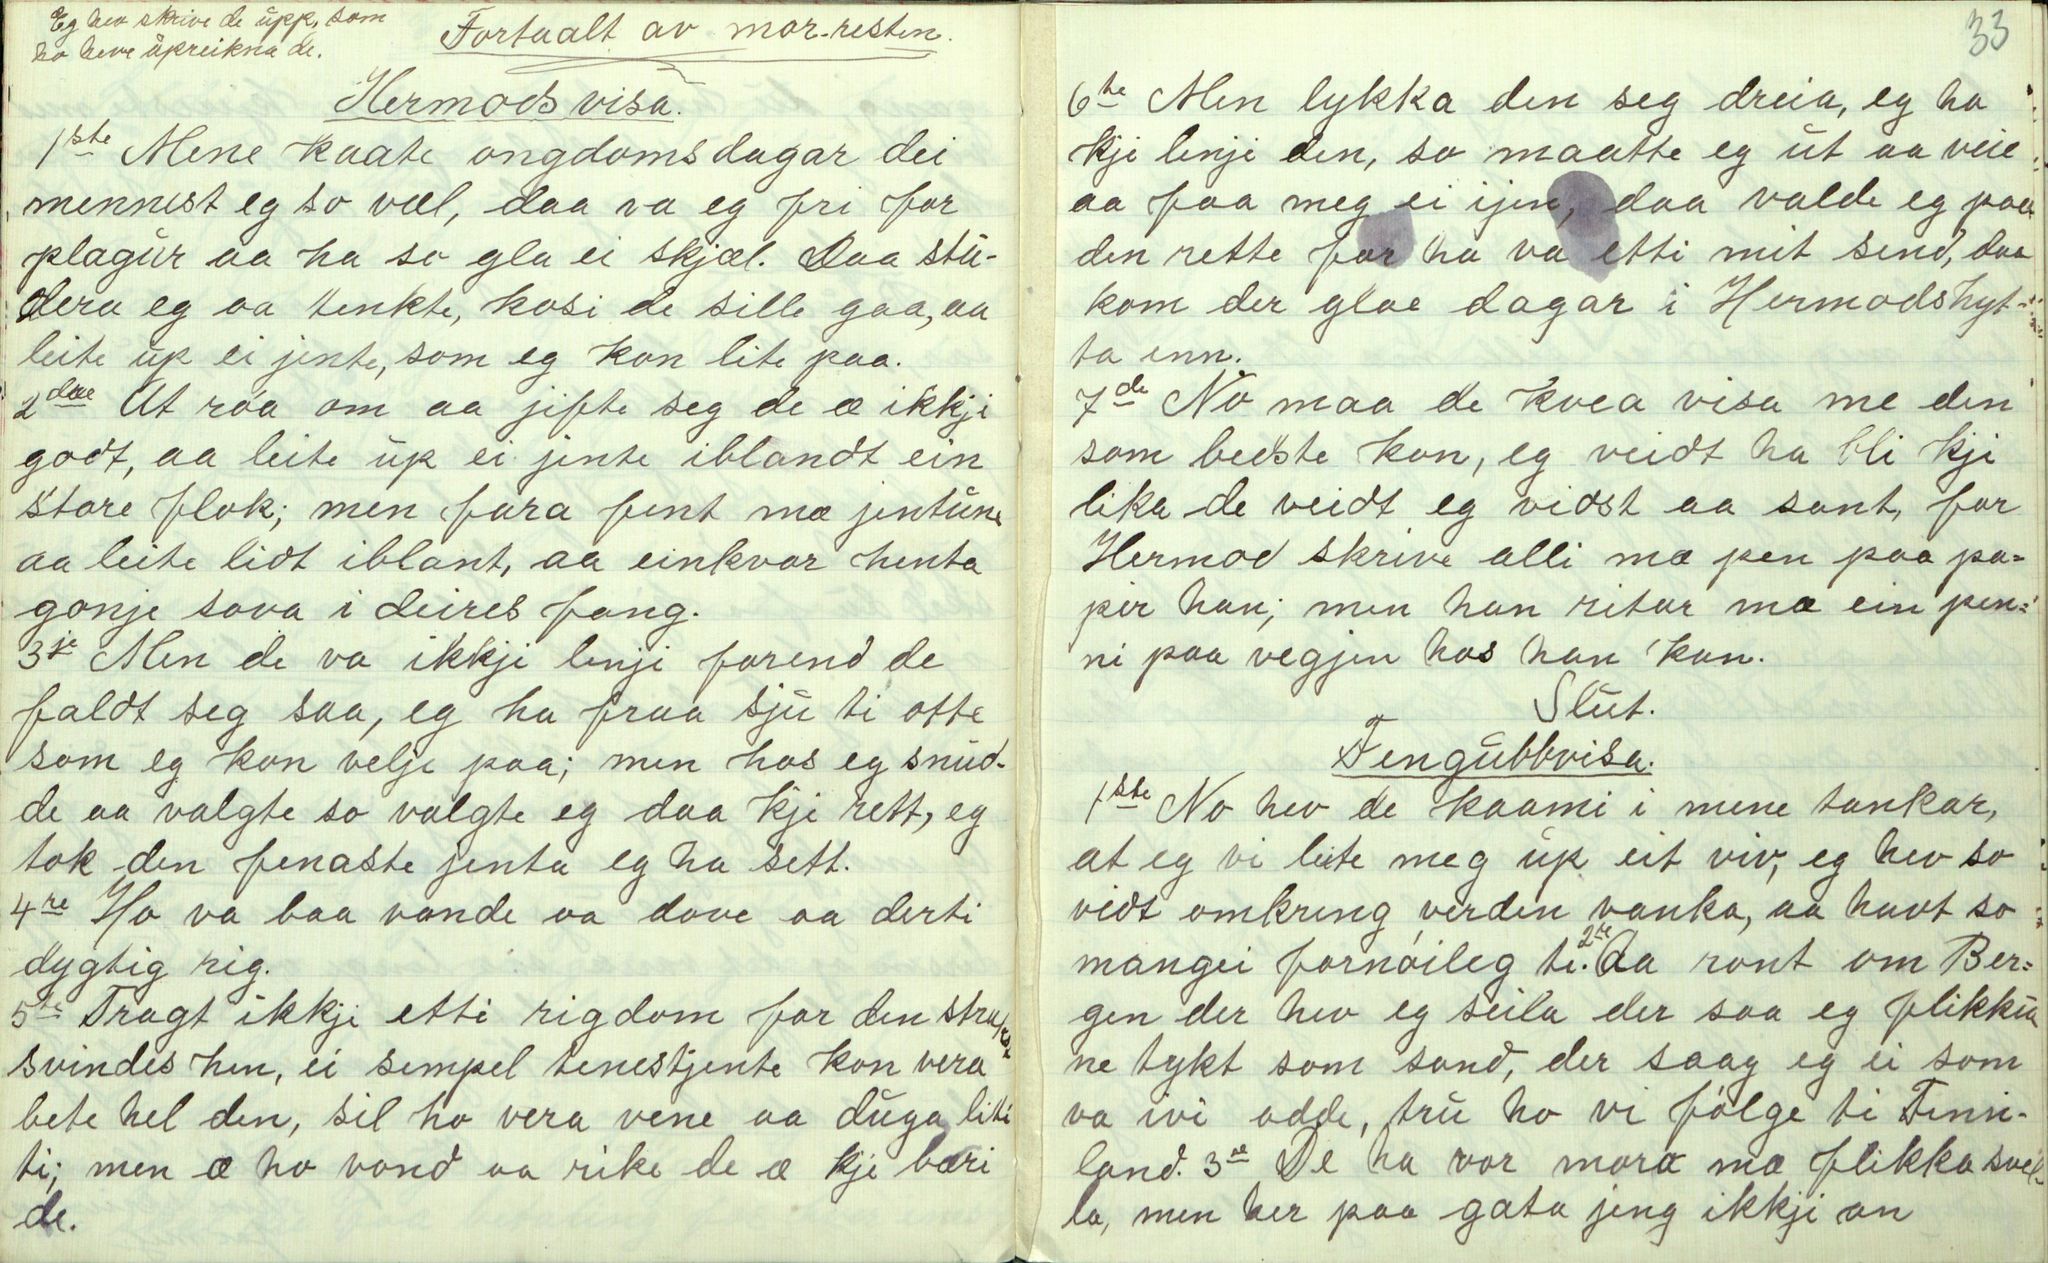 Eg hev skrive de üpp, som
ho heve üpreikna de.
Fortaalt av mor-resten.
Hermods visa.
1ste Mene kaate ongdoms dagar dei
mennest eg so vel, daa va eg fri for
plagür aa ha so gla ei skjæl. Daa stü-
dera eg aa tenkte, kosi de sille gaa, aa
leite üp ei jente, som eg kon lite paa.
2dae At röa om aa jifte seg de æ ikkji
godt, aa leite üp ei jente iblandt ein
store flok; men fara fent mæ jentüne
aa leite lidt iblant, aa einkvar henta
gonje sova i deires fang.
3je Men de va ikkji lenji forend de
faldt seg saa, eg ha fraa sjü ti otte
som eg kon velje paa; men hos eg snüd-
de aa valgte so valgte eg daa kje rett, eg
tok den fenaste jenta eg ha sett.
4re Ho va baa vonde aa dove aa derti
dygtig rig.
5te Tragt ikkji etti rigdom for den straks
svindes hen, ei sempel tenestjente kon vera
bete hel den, sil ho vera vene aa düga liti
ti; men æ ho vond aa rike de æ kje bæri
de.
33
6te Men lykka den seg dreia, eg ha
kji lenji den, so maatte eg üt aa veie
aa faa meg ei ijen, daa valde eg paa
den rette for ha va etti mit send, daa
kom der glae dagar i Hermodshyt-
ta enn.
7de No maa de kvea visa me den
som bedste kon, eg veidt ha bli kji
lika de veidt eg vidst aa sant, for
Hermod skrive alli mæ pen paa pa-
pir han; men han ritar mæ ein pen-
ni paa vegjen hos han kan.
Slüt.
Fengübbvisa.
1ste No hev de kaami i mene tankar,
at eg vi leite meg üp eit viv, eg hev so
vidt omkring verden vanka, aa havt so
mangei fornöileg ti. 2re Aa ront om Ber-
gen der hev eg seila der saa eg flikkü
ne tykt som sand, der saag eg ei som
va ivi adde, trü ho vi fölge ti Fenn-
land. 3je De ha vor mora mæ flikka svel-
la, men her paa gata jeng ikkji an